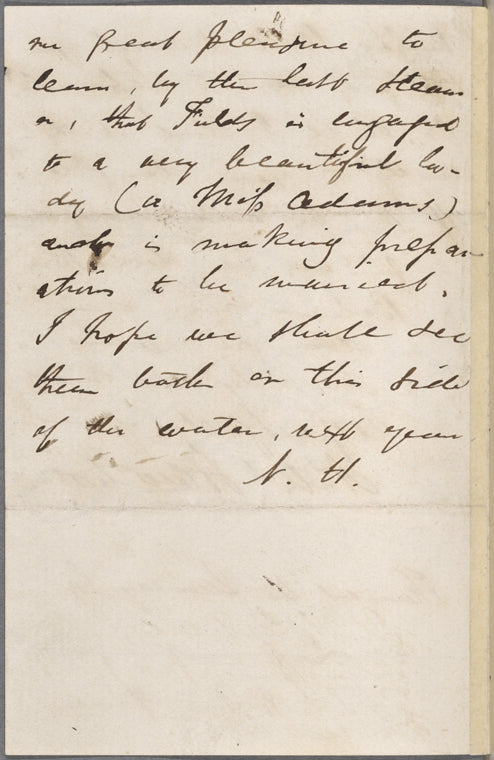 me great pleasure to
learn, by the last steam
er, that Fields is engaged
to a very beautiful la-
dy (a Miss Adams)
and is making prepar
ations to be married.
I hope we shall see
them both on this side
of the water, next year
N. H.